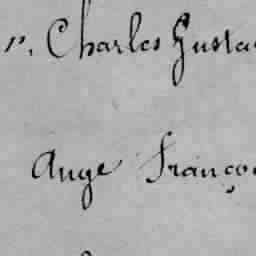 r. Charles Gusta
Ange Franço